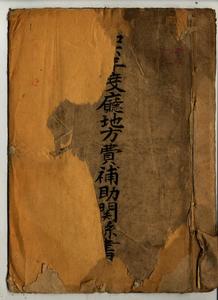 度廳地方費補助關係書